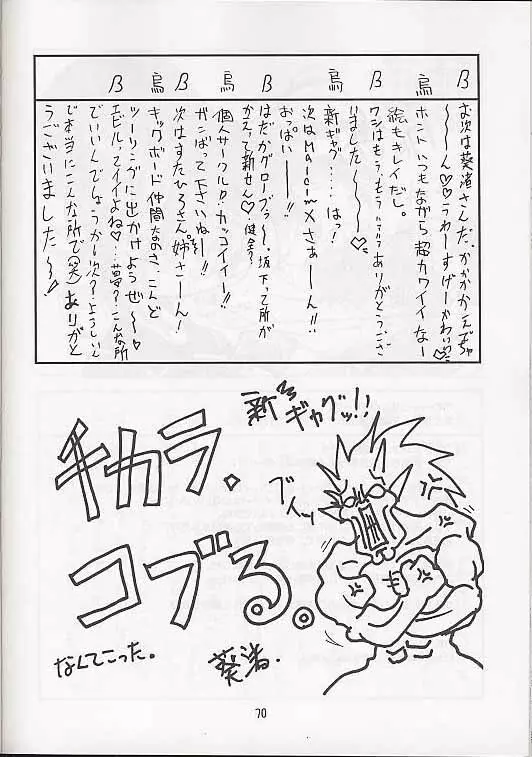 β お次は葵渚さんだ、かかかかえぢゃ
〜〜ん♡♡うわーすげーかわいい♡
烏 ホントいつもながら超カワイイなー
絵もキレイだし。
β ワシはもう、もう…ありがとうござ
いました〜〜〜♡
烏 新ギャグ……はっ!
次はMalcimXさぁ〜ん!!
おっぱい──!!
β はだかグローブっ〜、坂下って所が
かえって新せん♡健全?
烏 個人サークルD・カッコイイー!!
ガンばって下さいねー!!
β 次はすたひろさん、姉さーん!
烏 キックボード仲間なのさ、こんど
ツーリングに出かけようぜ〜〜♡
β エビルってイイよね♡…夢?こんな所
でいいんでしょうか〜次?ようしいん
で本当にこんな所で(笑)ありがと
うございました〜〜!
新ギャグッ!!
チカラ、
コブる。
ブイッ
なんてこった。
葵渚.
70